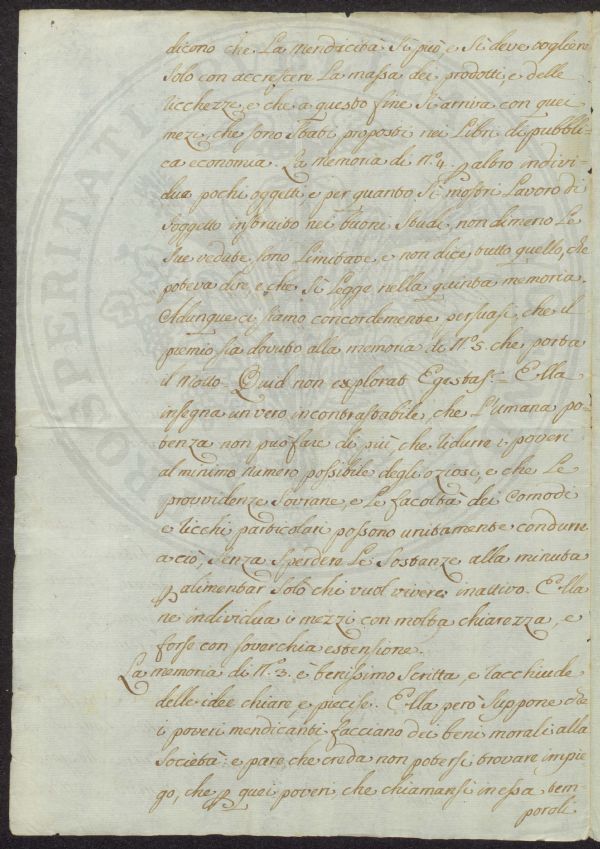 dicono che La mendicità si può, e si deve togliere
solo con accrescere La massa dei prodotti, e delle
ricchezze, e che a questo fine si arriva con quei
mezi, che sono stati proposti nei Libri di pubbli-
ca economia. La memoria di N.º 4. p altro indivi-
dua pochi oggetti, e per quanto si mostri Lavoro di
soggetto instruito nei buoni studi, non di meno Le
sue vedute sono Limitate, e non dice tutto quello, che
poteva dire, e che si Legge nella quinta memoria.
Adunque ci siamo concordemente persuasi, che il
premio sia dovuto alla memoria di N.º 5. che porta
il Motto - Quid non explorat Egestas - Ella
insegna un vero incontrastabile, che L'umana po-
tenza non può fare di più, che ridurre i poveri
al minimo numero possibile degli oziosi, e che Le
provvidenze Sovrane, e Le facoltà dei Comodi
e ricchi particolari possono unitamente condurre
a ciò, senza sperdere Le Sostanze alla minuta
p alimentar solo chi vuol vivere inattivo. Ella
ne individua i mezzi con molta chiarezza, e
forse con soverchia estensione.
La memoria di N.º 3. è benissimo scritta, e racchiude
delle idee chiare, e precise. Ella però suppone che
i poveri mendicanti facciano dei beni morali alla
Società: e pare, che creda non potersi trovare impie-
go, che p quei poveri, che chiamansi in essa tem
porali
PROSPERITATI